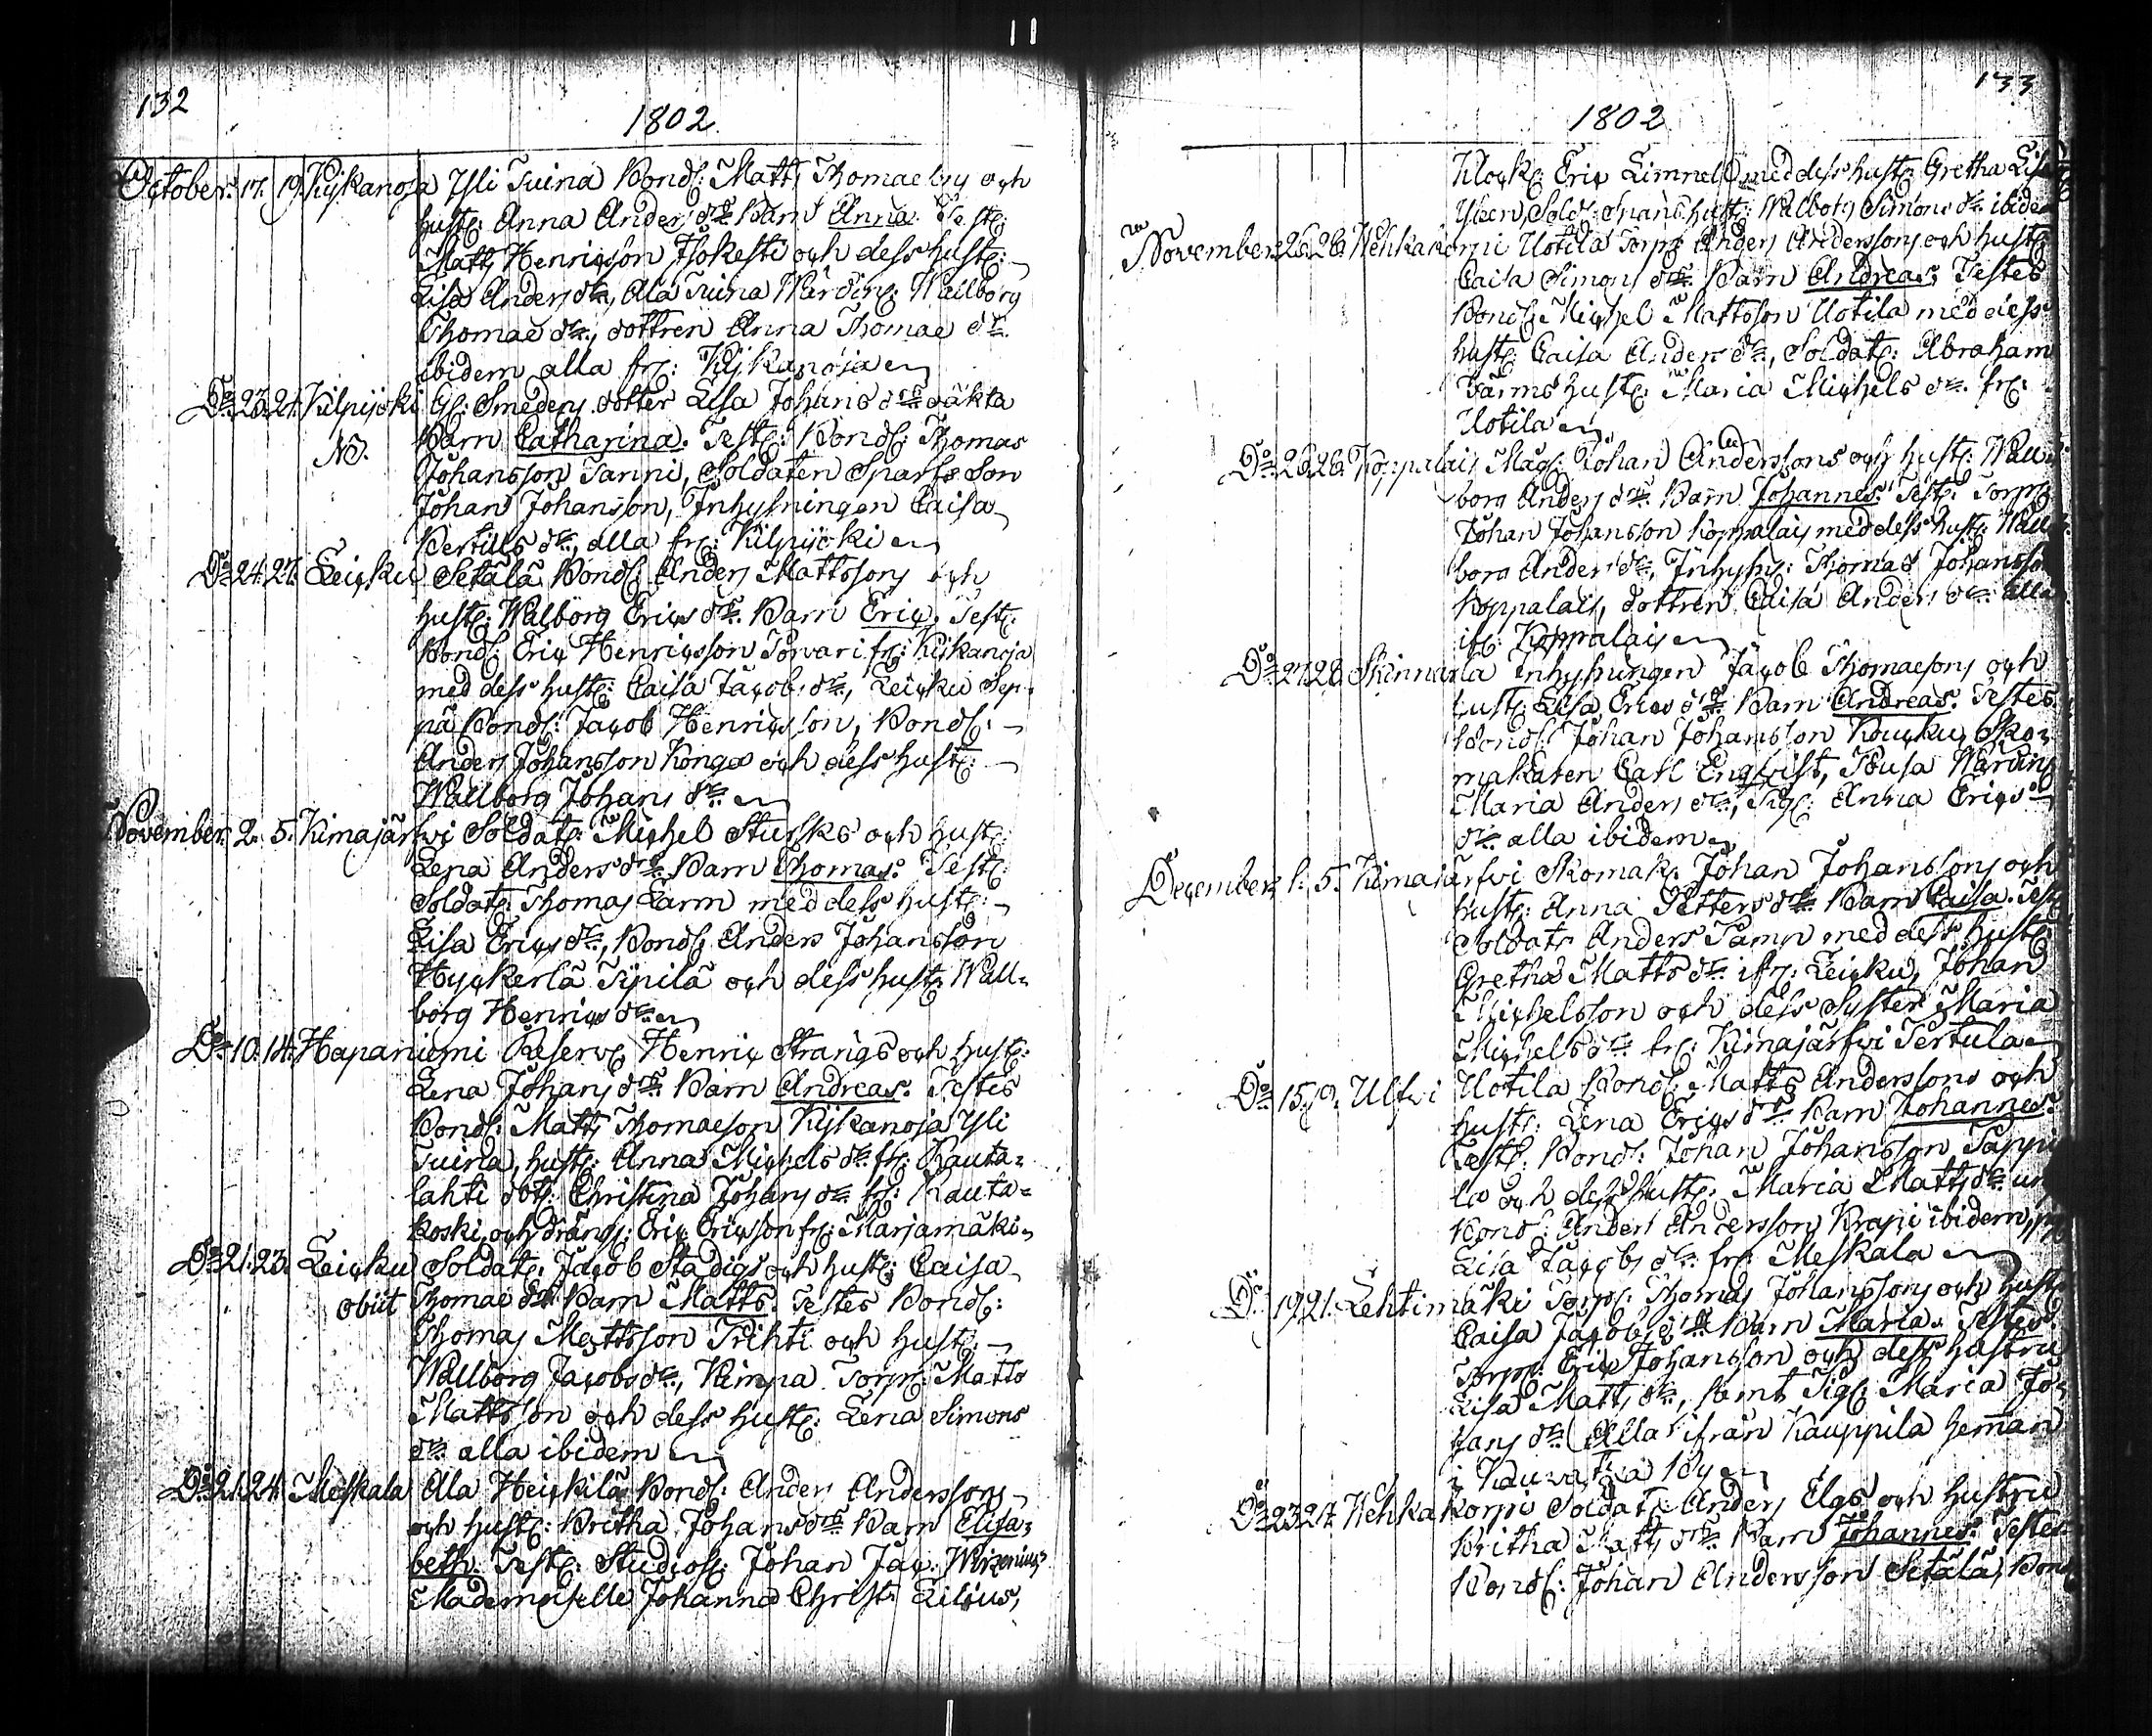 132
1802.
October. 17. 19. Kijkanoja Yli Tuina Bond: Matts Thomaesons och
hust: Anna Anders dr. Barn Anna. Test:
Matts Henricsson Isokesti och dess hust:
Lisa Anders dr., Ala Tuina Wärdin: Wallborg
Thomae dr., dottren Anna Thomae dr.
ibidem alla fr: Kijkanoja
Do 23. 24. Kilpijoki Gl: Smedens dotter Lisa Johans drs oäkta
NB. Barn Catharina. Test: Bond: Thomas
Johansson Tanni, Soldaten Sparfs Son
Johan Johansson, Inhysningen Caisa
Bertills dr., alla fr: Kilpijoki
Do 24. 27. Leicku Setälä Bond: Anders Mattssons och
hust: Walborg Erics drs. Barn Eric. Test:
Bond: Eric Henricsson Torvari fr: Kijkanoja
med dess hust: Caisa Jacobs dr., Leicku Sep-
pä Bond: Jacob Henricsson, Bond:
Anders Johansson Köngäs och dess hust:
Wallborg Johans dr.
November. 2. 5. Kimajärfvi Soldat: Michel Sturcks och hust:
Lena Anders drs. Barn Thomas. Test:
Soldat: Thomas Larm med dess hust:
Lisa Erics dr., Bond: Anders Johansson
Hyckerlä Sipilä och dess hust: Wall-
borg Henrics dr.
Do 10. 14. Hapaniemi Reserv: Henric Strangs och hust:
Lena Johans drs. Barn Andreas. Testes
Bond: Matts Thomaeson Kijkanoja Yli
Tuina, hust: Anna Michels dr. fr: Rauta-
lahti dot: Christina Johans dr. fr: Rauta-
koski, och dräng: Eric Ericsson fr: Marjamäki.
Do 21. 23. Leicku Soldat: Jacob Stadigs och hust: Caisa
obiit Thomae drs Barn Matts. Testes Bond:
Thomas Mattsson Prihti och hust:
Wallborg Jacobs dr., Kimpa Torp: Matts
Mattsson och dess hust: Lena Simons
dr. alla ibidem
Do 21. 24. Meskala Ala Heickilä Bond: Anders Anderssons
och hust: Britha Johans drs Barn Elisa-
beth. Test: Studios: Johan Jac: Wirzenius
Mademoiselle Johanna Christ: Lilius,
133
1802
Klock: Eric Limnell med dess hust: Gretha Lisa
Yben, Sold: hust: Walborg Simons dr. ibidem
November 26. 28. Wehkakorpi Uotila Torp: Anders Anderssons och hust:
Caisa Simons drs. Barn Andreas. Testes
Bond: Michel Mattsson Uotila med dess
hust: Caisa Anders dr., Soldat: Abraham
Järms hust: Maria Michels dr. fr:
Uotila
Do 26. 28. Koppalais Mag: Johan Anderssons och hust: Wall-
borg Anders drs. Barn Johannes. Test: Torp:
Johan Johansson Koppalais med dess hust: Wall-
borg Anders dr., Inhysn: Thomas Johansson
Koppalais, dottren Caisa Anders dr. alla
ifr: Koppalais
Do 27. 28. Skinnarla Inhysningen Jacob Thomaesons och
hust: Lisa Erics drs. Barn Andreas. Testes
Bond: Johan Johansson Koucku, Sko-
makaren Carl Engqvist, Pousa Wärdin:
Maria Anders dr., Pig: Anna Erics
dr. alla ibidem
December 1. 5. Kimajärfvi Skomak: Johan Johanssons och
hust: Anna Petters drs. Barn Caisa. Test:
Soldat: Anders Tamm med dess hust:
Gretha Matts dr. ifr: Leicku, Johan
Michelsson och dess syster Maria
Michels dr. fr: Kimajärfvi Pertula
Do 15. 19. Ulfvi Uotila Bond: Matts Anderssons och
hust: Lena Erics drs Barn Johannes.
Test: Bond: Johan Johansson Pappi-
la och dess hust: Maria Matts dr.
Bond: Anders Andersson Krapi ibidem,
Lisa Jacobs dr. fr: Meskala
Do 19. 21. Lehtimäki Torp: Thomas Johanssons och hust:
Caisa Jacobs drs Barn Maria. Testes
Torp: Eric Johansson och dess hustru
Lisa Matts dr., samt Pig: Maria Jo-
hans dr. Alla ifrån Kauppila heman
i Kauvatsa By
Do 23. 27. Wehkakorpi Soldat: Anders Elgs och hustru
Britha Matts drs. Barn Johannes. Testes
Bond: Johan Andersson Setälä, Bond: